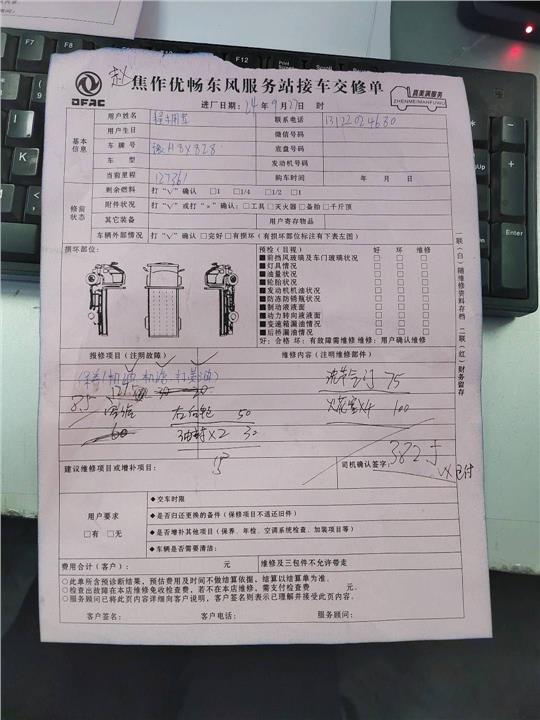 赵
DFAC
焦作优畅东风服务站接车交修单
真美满服务
ZHENMEIMANFUWU
进厂日期：24年9月27日 时
基本信息
用户姓名
联系电话 13122024630
用户生日
微信号码
车牌号 豫H8X828
底盘号码
车型
发动机号码
当前里程 127361
购车时间 年 月 日
修前状态
剩余燃料 打“√”确认 □1 □1/4 □1/2 □1
附件状况 打“√”或打“×”确认：□工具 □灭火器 □备胎 □千斤顶
其它装备
用户寄存物品
车辆外部情况 打“√”确认 □完好 □有损坏（有损坏部位标注有下表左图）
损坏部位：
预检（目视） 好 坏 维修
■前挡风玻璃及车门玻璃状况 □ □ □
■灯具情况 □ □ □
■油量状况 □ □ □
■轮胎状况 □ □ □
■发动机机油状况 □ □ □
■防冻防锈瓶状况 □ □ □
■制动液液面 □ □ □
■动力转向液液面 □ □ □
■变速箱漏油情况 □ □ □
■后桥漏油情况 □ □ □
好：合格 坏：有故障需维修 维修：用户确认维修
一联（白）随维修资料存档 二联（红）财务留存
报修项目（注明故障）
维修内容（注明维修部件）
机油 机滤 打黄油
75
8.5
火花塞×4 100
左右后轮 50
60
油封×2 30
15
382.5
建议维修项目或增补项目：
司机确认签字：
VX已付
用户要求
□有 □无
◆交车时限
◆是否归还更换的备件（保修项目不退还旧件）
◆是否增补其他项目（保养、年检、空调系统检查、加装项目等）
◆车辆是否需要清洁：
费用合计（客户）： 元
维修及三包件不允许带走
○此单所含预诊断结果，预估费用及时间不做结算依据，结算以结算单为准。
○检查出故障在本店维修免收检查费，若不在本店维修，需支付检查费 元。
○服务顾问已将此页内容详细向客户说明，客户签名则表示已理解并接受此页内容。
客户签名： 客户电话： 服务顾问：